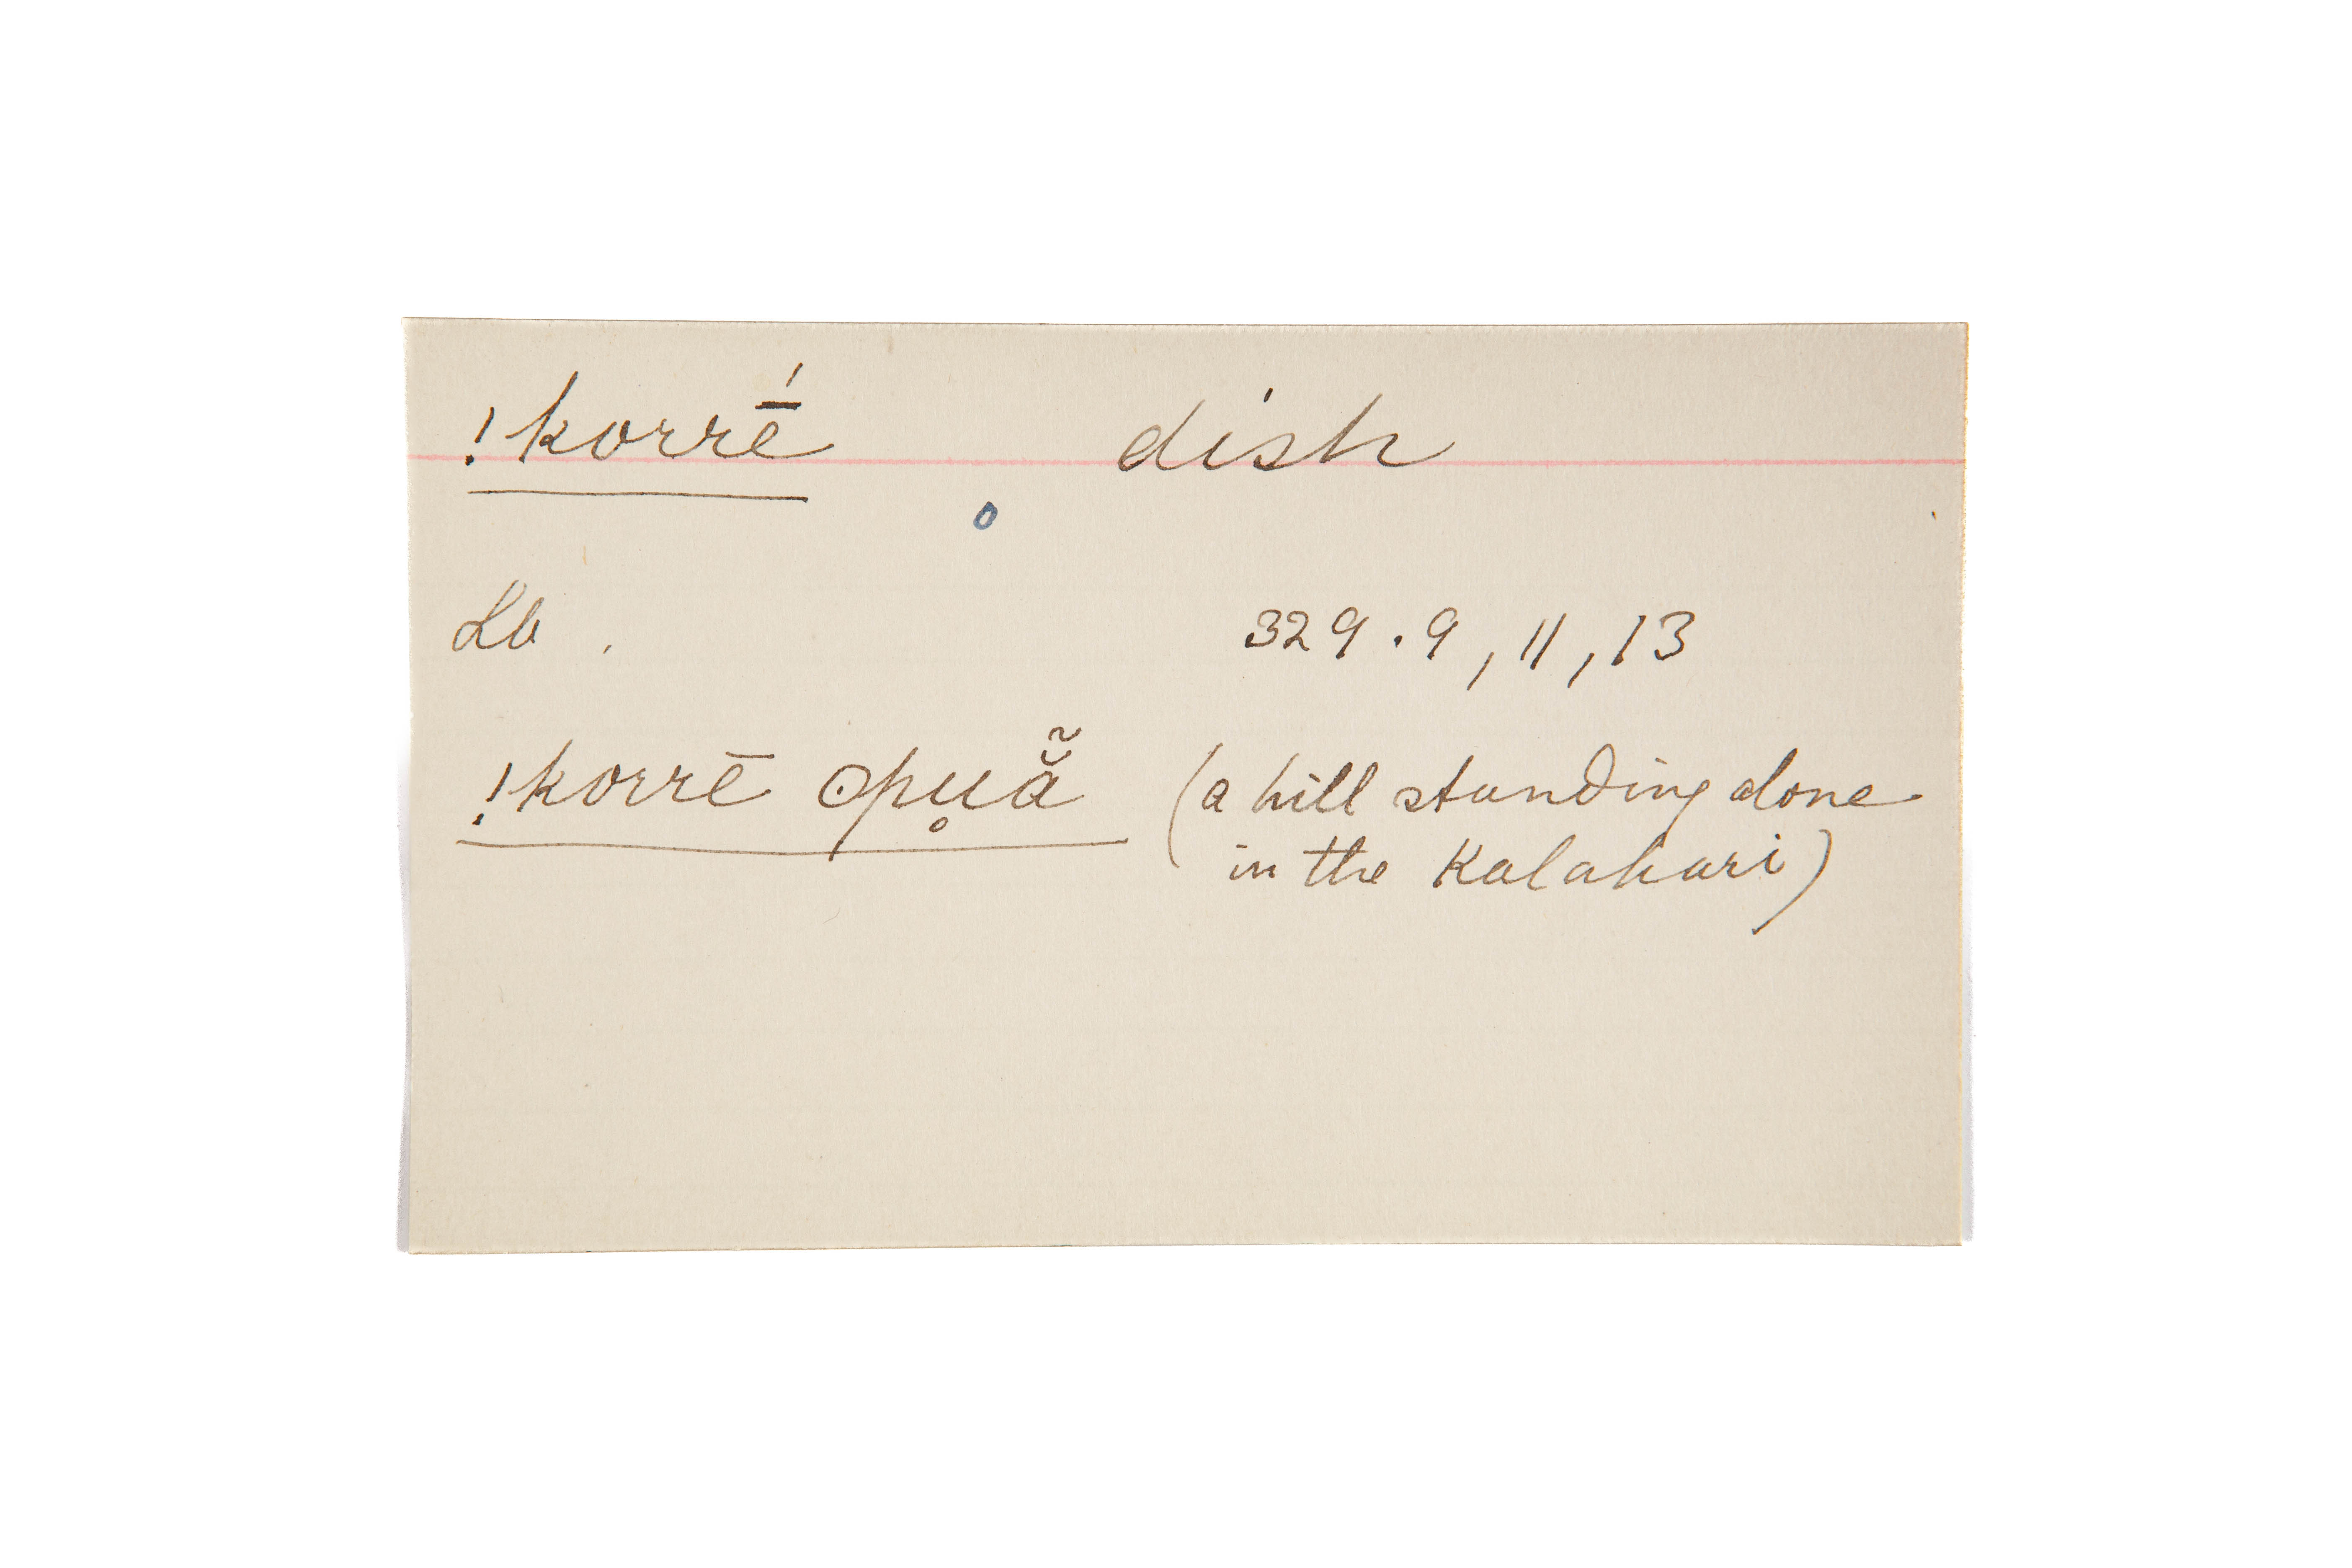 !korrḗ dish
o
Lb . 329.9, 11, 13
!korrē ʘpu̥ẵ (a hill standing alone
in the Kalahari)